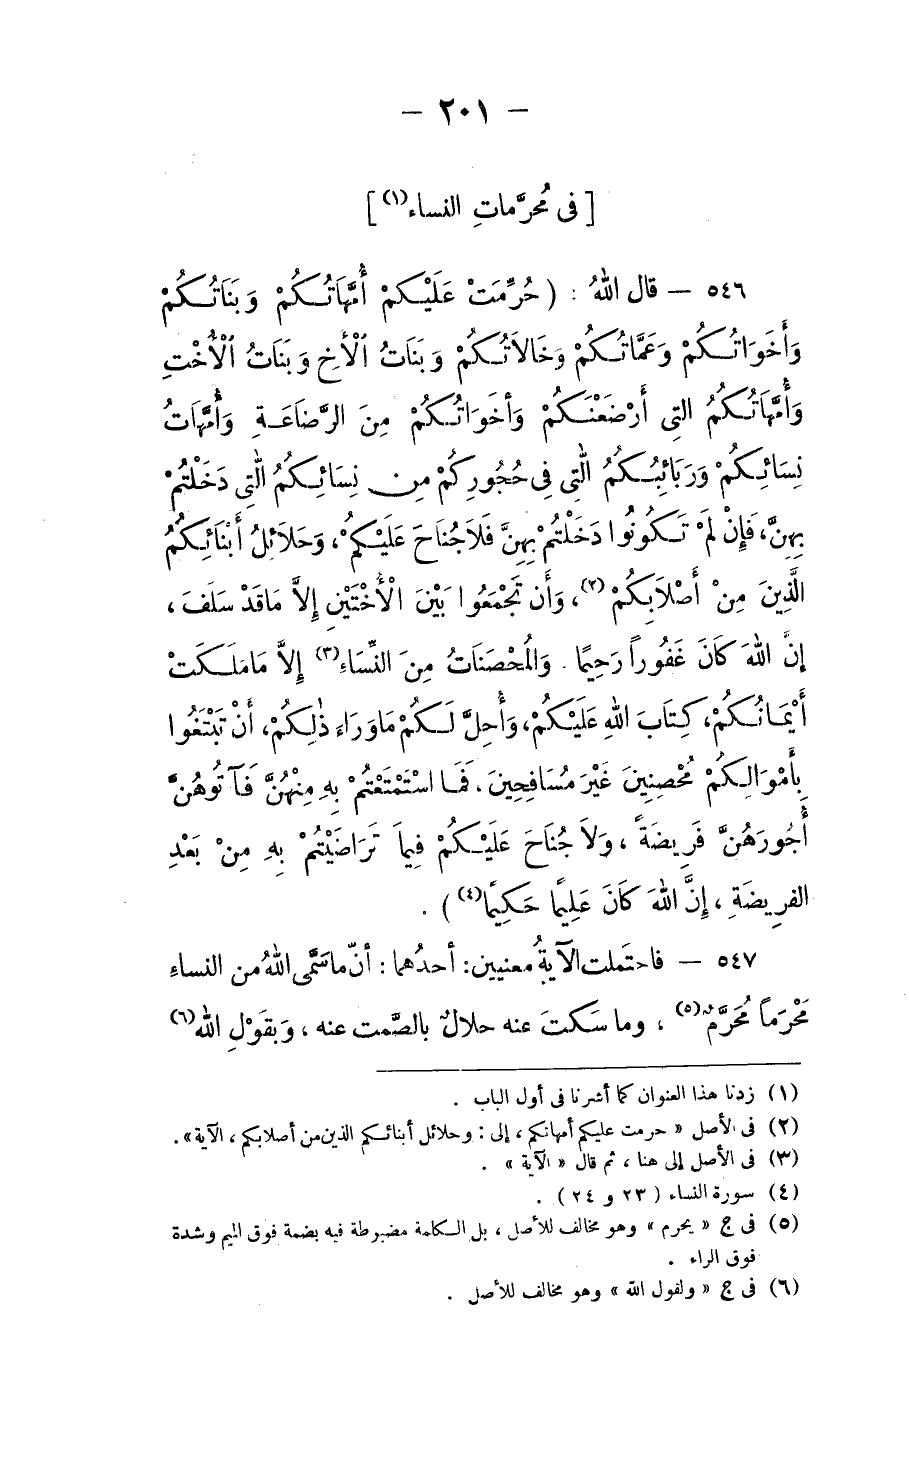 — ٢٠١ —
[ فى مُحرَّماتِ النساء(١) ]
٥٤٦ — قال اللهُ : ( حُرِّمَتْ عَلَيْكُمْ أُمَّهَاتُكُمْ وَبَنَاتُكُمْ
وَأَخَوَاتُكُمْ وَعَمَّاتُكُمْ وَخَالَاتُكُمْ وَبَنَاتُ الْأَخِ وَبَنَاتُ الْأُخْتِ
وَأُمَّهَاتُكُمُ التِى أَرْضَعْنَكُمْ وَأَخَوَاتُكُمْ مِنَ الرَّضَاعَةِ وَأُمَّهَاتُ
نِسَائِكُمْ وَرَبَائِبُكُمُ الّٰتِى فِى حُجُورِكُمْ مِن نِسَائِكُمُ الّٰتِى دَخَلْتُمْ
بِهِنَّ، فَإِنْ لَمْ تَكُونُوا دَخَلْتُمْ بِهِنَّ فَلَا جُنَاحَ عَلَيْكُمْ، وَحَلَائِلُ أَبْنَائِكُمُ
الَّذِينَ مِنْ أَصْلَابِكُمْ(٢)، وَأَن تَجْمَعُوا بَيْنَ الْأُخْتَيْنِ إِلاَّ مَا قَدْ سَلَفَ ،
إِنَّ اللهَ كَانَ غَفُوراً رَحِيمًا . وَالْمُحْصَنَاتُ مِنَ النِّسَاءِ(٣) إِلاَّ مَا مَلَكَتْ
أَيْمَانُكُمْ، كِتَابَ اللهِ عَلَيْكُمْ، وَأُحِلَّ لَكُمْ مَا وَرَاءَ ذٰلِكُمْ، أَنْ تَبْتَغُوا
بِأَمْوَالِكُمْ مُحْصِنِينَ غَيْرَ مُسَافِحِينَ، فَمَا اسْتَمْتَعْتُمْ بِهِ مِنْهُنَّ فَآتُوهُنَّ
أُجُورَهُنَّ فَرِيضَةً ، وَلَا جُنَاحَ عَلَيْكُمْ فِيمَا تَرَاضَيْتُمْ بِهِ مِنْ بَعْدِ
الفَرِيضَةِ ، إِنَّ اللهَ كَانَ عَلِيمًا حَكِيمًا(٤) ) .
٥٤٧ — فاحتَملت الآيةُ معنيين: أحدُهما: أنّ ما سَمَّى اللهُ من النساء
مَحْرَماً مُحَرَّمٌ(٥) ، وما سَكَتَ عنه حلالٌ بالصَّمت عنه ، وَبقَوْلِ الله(٦)
(١) زدنا هذا العنوان كما أشرنا فى أول الباب .
(٢) فى الأصل « حرمت عليكم أمهاتكم ، إلى : وحلائل أبنائكم الذين من أصلابكم ، الآية» .
(٣) فى الأصل إلى هنا ، ثم قال « الآية » .
(٤) سورة النساء ( ٢٣ و ٢٤ ) .
(٥) فى ج « يحرم » وهو مخالف للأصل ، بل الكلمة مضبوطة فيه بضمة فوق الميم وشدة
فوق الراء .
(٦) فى ج « ولقول الله » وهو مخالف للأصل .